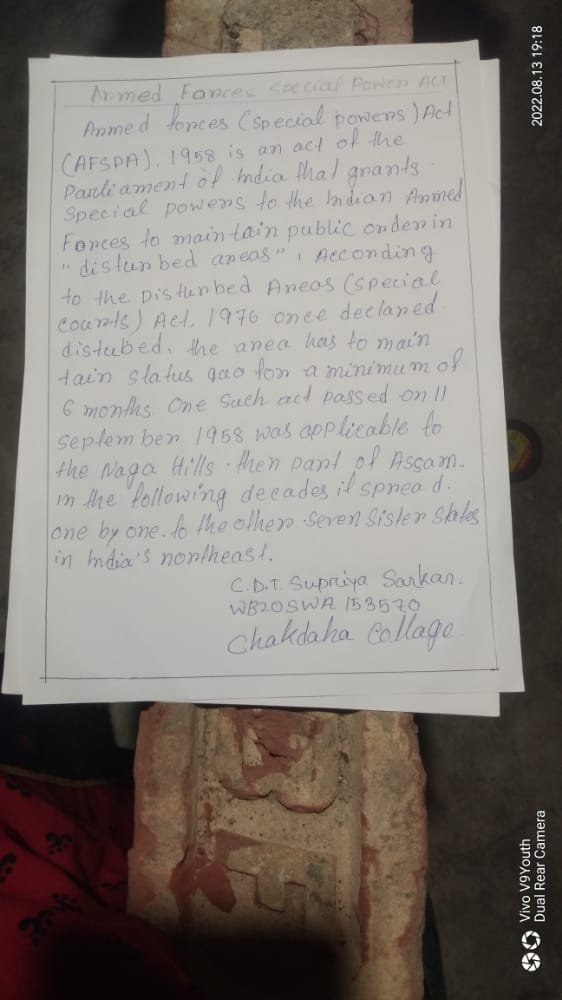 Armed Forces Special Power ACT
Armed forces (special powers) Act
(AFSPA). 1958 is an act of the
Parliament of India that grants
special powers to the Indian Armed
Forces to maintain public order in
"disturbed areas", According
to the Disturbed Areas (special
courts) Act, 1976 once declared
distubed, the area has to main
tain status quo for a minimum of
6 months. One such act passed on 11
september 1958 was applicable to
the Naga Hills. then part of Assam.
in the following decades it spread.
one by one. to the other seven sister states
in India's northeast.
C.D.T. Supriya Sarkar.
WB20SWA 153570
Chakdaha Collage.
2022.08.13 19:18
Vivo V9Youth
Dual Rear Camera